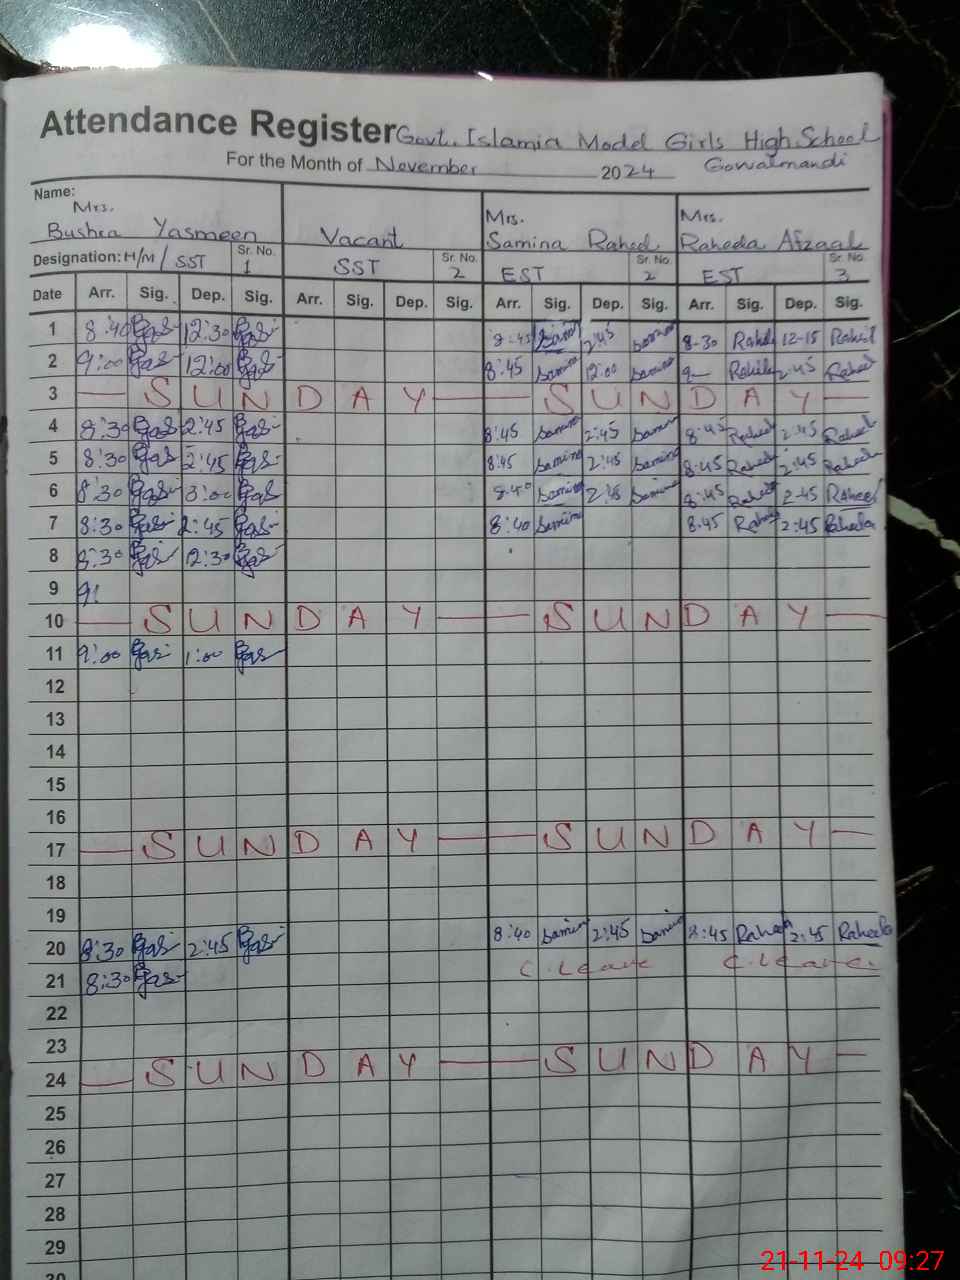 Attendance Register Govt. Islamia Model Girls High School
For the Month of November 2024 Gowalmandi
Name: Mrs. Mrs. Mrs.
Bushra Yasmeen Vacant Samina Rahed Raheda Afzaal
Designation: H/M / SST Sr. No. 1 SST Sr. No. 2 EST Sr. No. 2 EST Sr. No. 3
Date Arr. Sig. Dep. Sig. Arr. Sig. Dep. Sig. Arr. Sig. Dep. Sig. Arr. Sig. Dep. Sig.
1 8:40 12:30 8:45 2:45 8-30 12-15
2 9:00 12:00 8:45 Samina 12:00 Samina 9- 2:45
3 — SUNDAY — SUNDAY —
4 8:30 2:45 8:45 Samina 2:45 Samina 8:45 2:45
5 8:30 2:45 8:45 Samina 2:45 Samina 8:45 2:45
6 8:30 3:00 8:40 Samina 2:45 Samina 8:45 2-45
7 8:30 2:45 8:40 Samina 8:45 2:45
8 8:30 12:30
9 9:
10 — SUNDAY — SUNDAY —
11 9:00 1:00
12
13
14
15
16
17 — SUNDAY — SUNDAY —
18
19
20 8:30 2:45 8:40 Samina 2:45 Samina 8:45 2:45
21 8:30 C.Leave C.Leave
22
23
24 — SUNDAY — SUNDAY —
25
26
27
28
29
30
21-11-24 09:27